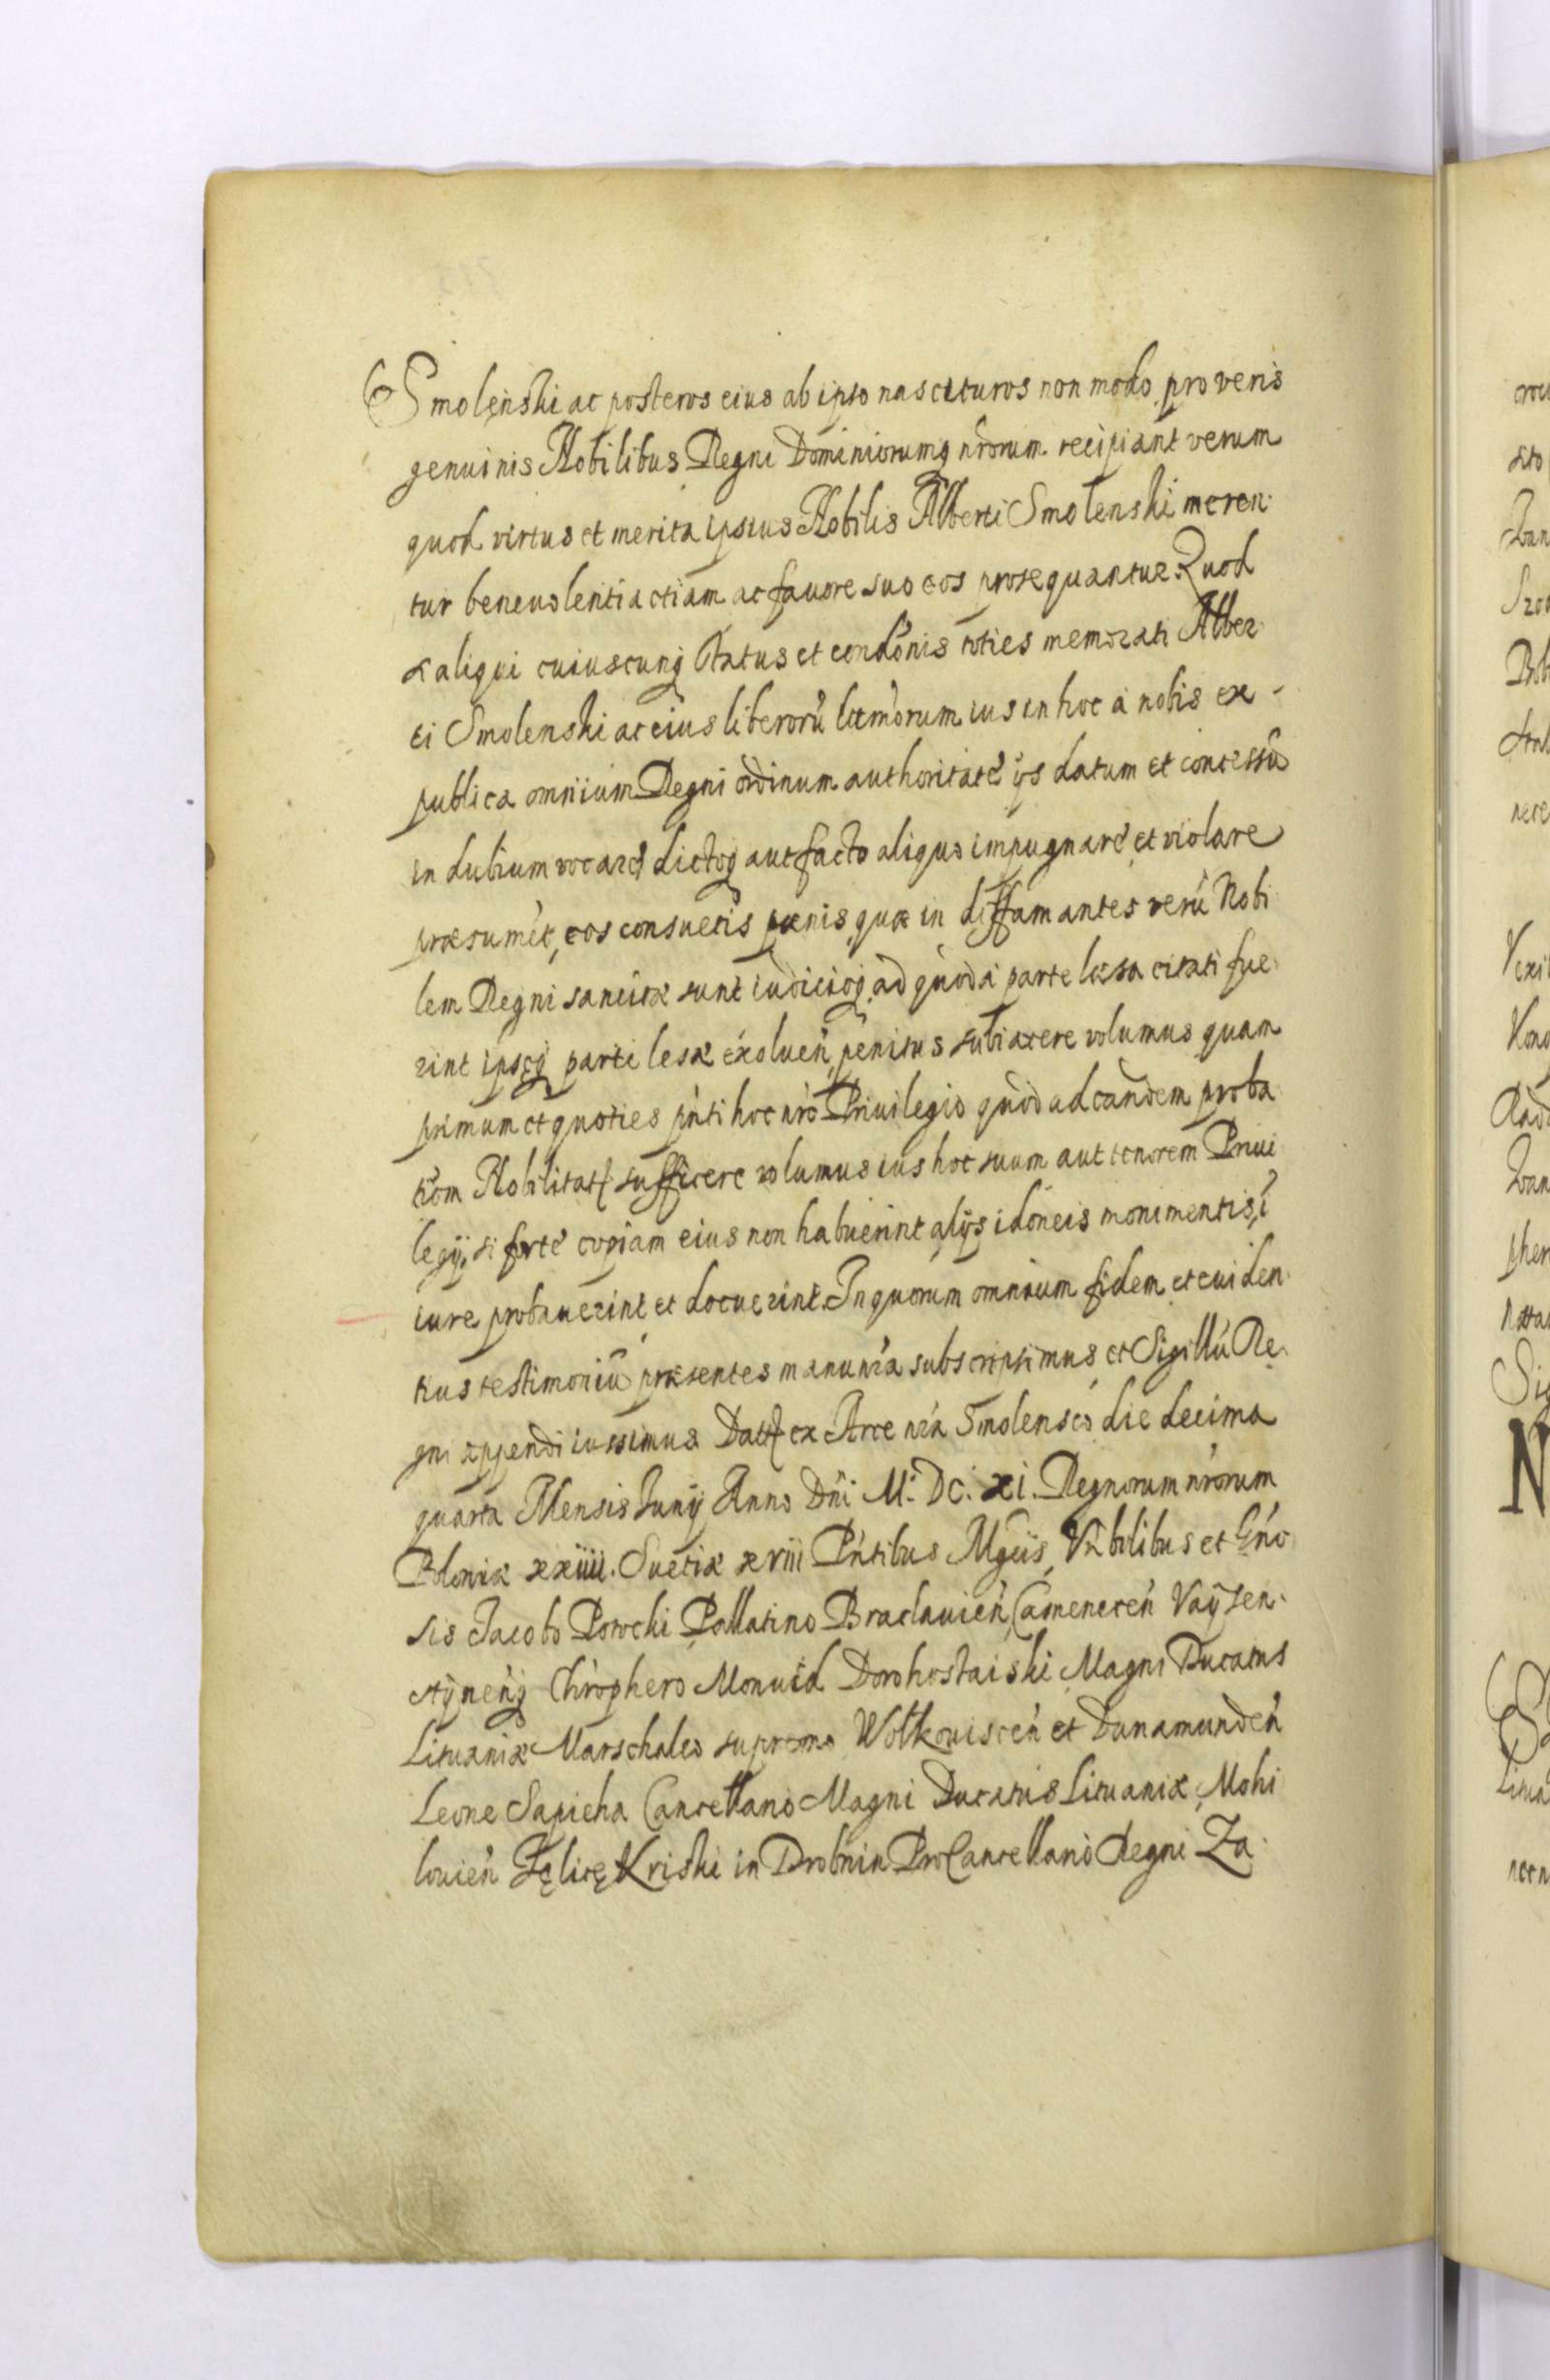 Smolenski ac posteros eius ab ipso nascituros non modo pro veris
genuinis Nobilibus Regni Dominiorumq nrorum recipiant verum
quod virtus et merita ipsius Nobilis Alberti Smolenski meren
tur beneuolentia etiam ac fauore suo eos prosequantur. Quod
si aliqui cuiuscunq status et condonis toties memorati Alber
ti Smolenski ac eius liberorũ ltimorum ius in hoc a nobis ex
publica omnium Regni ordinum authoritate ijs datum et concessũ
in dubium vocare dictoq aut facto aliquo impugnare et violare
præsumet, eos consuetis pœnis, quæ in diffamantes verũ Nobi
lem Regni sancitæ sunt iudicioq ad quod a parte læsa citati fue
rint ipsiq parti lesæ exoluen, penitus subiacere volumus quam
primum et quoties pnti hoc nro Priuilegio quod ad eandem proba
tiom Nobilitatis sufficere volumus ius hoc suum aut tenorem Priui
legij, si forte copiam eius non habuerint alijs idoneis monimentis, i
iure probauerint et docuerint. In quorum omnium fidem et euiden
tius testimoniũ præsentes manu nra subscripsimus et Sigillũ Re
gni appendi iussimus Datt ex Arce nra Smolensco die decima
quarta Mensis Junij Anno Dni M. DC. xi. Regnorum nrorum
Poloniæ xxiiii. Suetiæ xviii Pntibus Mgcis, Vnbilibus et Gno
sis Jacobo Potocki Pallatino Braclauien, Camenecen
Chrophero Monuid Dorohostaiski Magni Ducatus
Lituaniæ Marschalco supremo Wolkouiscen et Dunamunden
Leone Sapieha Cancellario Magni Ducatus Lituaniæ, Mohi
louien Fęlicę Kriski in Drobnin ProCancellario Regni Za